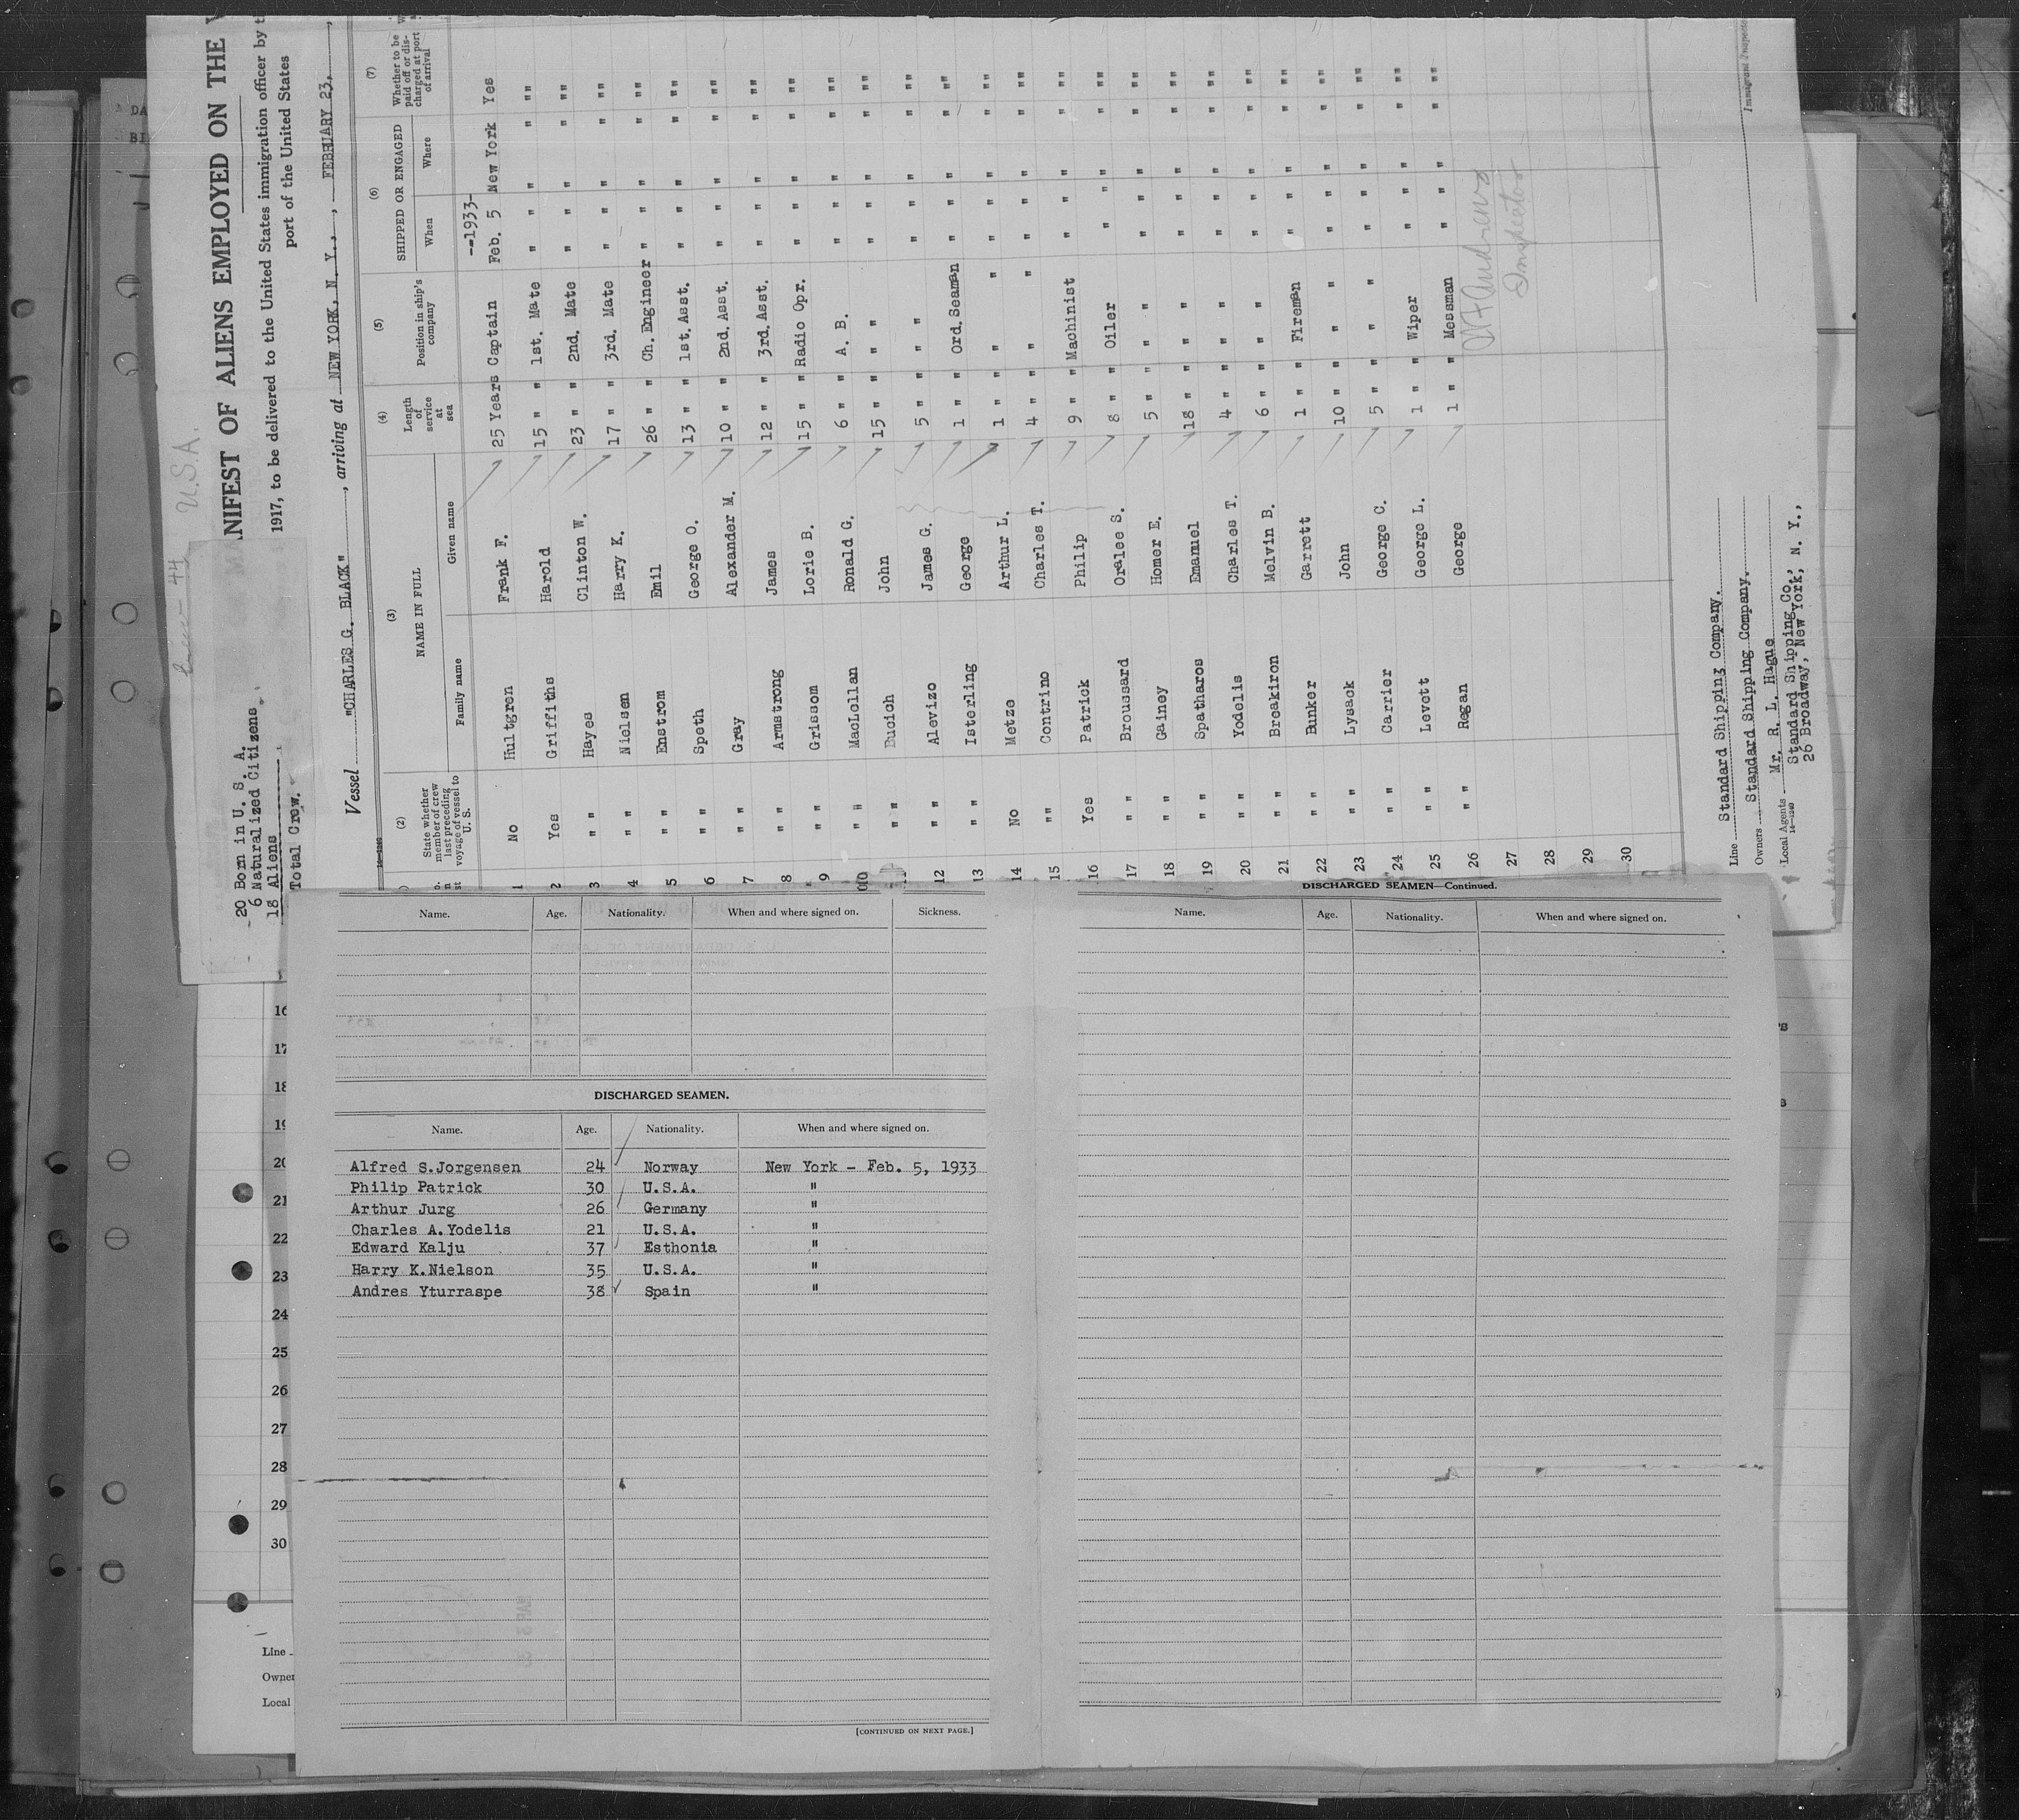 Crew - 44 U.S.A.
20 Born in U. S. A.
6 Naturalized Citizens.
18 Aliens
Total Crew.
ANIFEST OF ALIENS EMPLOYED ON THE
1917, to be delivered to the United States immigration officer by t
port of the United States
Vessel "CHARLES G. BLACK", arriving at NEW YORK, N. Y., FEBRUARY 23,
(2) (3) (4) (5) (6) (7)
State whether member of crew last preceding voyage of vessel to U. S. NAME IN FULL Length of service at sea Position in ship's company SHIPPED OR ENGAGED Whether to be paid off or discharged at port of arrival
Family name Given name When Where
--1933-
1 No Hultgren Frank F. 25 Years Captain Feb. 5 New York Yes
2 Yes Griffiths Harold 15 " " 1st. Mate " " " " ""
3 " " Hayes Clinton W. 23 " " 2nd. Mate " " " " ""
4 " " Nielsen Harry K. 17 " " 3rd. Mate " " " " ""
5 " " Enstrom Emil 26 " " Ch. Engineer " " " " ""
6 " " Speth George O. 13 " " 1st. Asst. " " " " ""
7 " " Gray Alexander M. 10 " " 2nd. Asst. " " " " ""
8 " " Armstrong James 12 " " 3rd. Asst. " " " " ""
9 " " Grissom Lorie B. 15 " " Radio Opr. " " " " ""
10 " " MacLellan Ronald G. 6 " " A. B. " " " " ""
11 " " Bucich John 15 " " " " " " " " ""
12 " " Alevizo James G. 5 " " " " " " " " ""
13 " " Isterling George 1 " " Ord. Seaman " " " " ""
14 No Metze Arthur L. 1 " " " " " " " " ""
15 " " Contrino Charles T. 4 " " " " " " " " ""
16 Yes Patrick Philip 9 " " Machinist " " " " ""
17 " " Broussard Oralee S. 8 " " Oiler " " " " ""
18 " " Gainey Homer E. 5 " " " " " " " " ""
19 " " Spatharos Emanuel 18 " " " " " " " " ""
20 " " Yodelis Charles T. 4 " " " " " " " " ""
21 " " Breakiron Melvin B. 6 " " " " " " " " ""
22 " " Bunker Garrett 1 " " Fireman " " " " ""
23 " " Lysack John 10 " " " " " " " " ""
24 " " Carrier George C. 5 " " " " " " " " ""
25 " " Levett George L. 1 " " Wiper " " " " ""
26 " " Regan George 1 " " Messman " " " " ""
27
28
29
30
Inspector
Line Standard Shipping Company.
Owners Standard Shipping Company.
Local Agents Mr. R. L. Hague
Standard Shipping Co.,
26 Broadway, New York, N. Y.,
Immigrant Inspector
Name. Age. Nationality. When and where signed on. Sickness.
DISCHARGED SEAMEN.
Name. Age. Nationality. When and where signed on.
Alfred S.Jorgensen 24 Norway New York - Feb. 5, 1933
Philip Patrick 30 U.S.A. "
Arthur Jurg 26 Germany "
Charles A.Yodelis 21 U.S.A. "
Edward Kalju 37 Esthonia "
Harry K.Nielson 35 U.S.A. "
Andres Yturraspe 38 Spain "
[CONTINUED ON NEXT PAGE.]
DISCHARGED SEAMEN—Continued.
Name. Age. Nationality. When and where signed on.
16
17
18
19
20
21
22
23
24
25
26
27
28
29
30
Line
Owner
Local